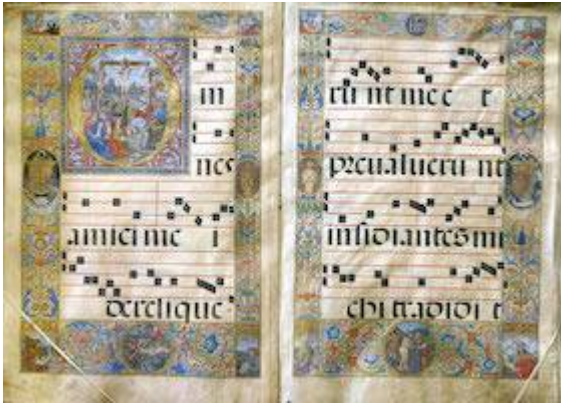 Om
nes
amici me i
derelique
ru nt me e t
preualueru nt
insidiantes mi
chi tradidi t